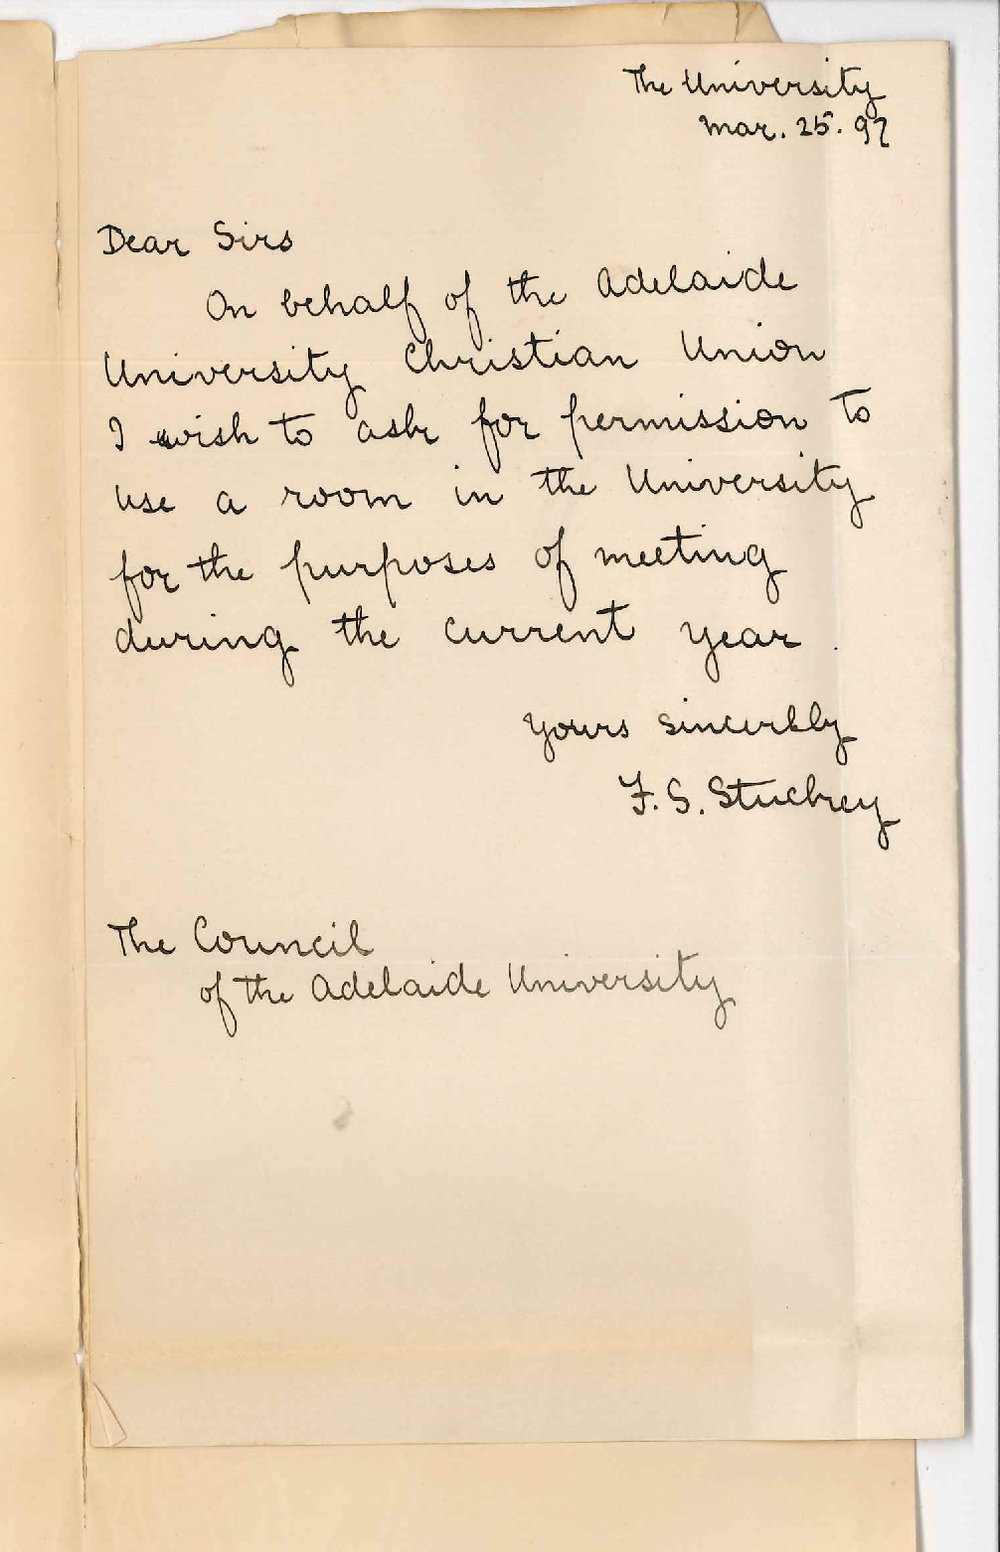 The University
Mar. 25. 97
Dear Sirs
On behalf of the Adelaide
University Christian Union
I wish to ask for permission to
use a room in the University
for the purposes of meeting
during the current year.
Yours sincerely
F. S. Stuckey
The Council
of the Adelaide University